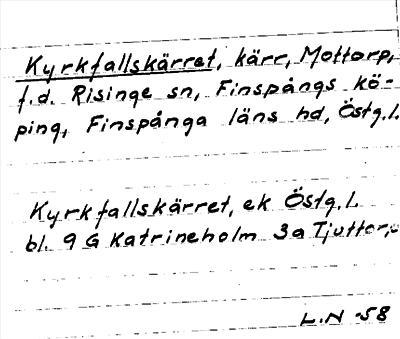 Kyrkfallskärret, kärr, Mottorp,
f.d. Risinge sn, Finspångs kö-
ping, Finspånga läns hd, Östg.l.
Kyrkfallskärret, ek Östg.l.
bl. 9 G Katrineholm 3a Tjuttorp
L.N -58